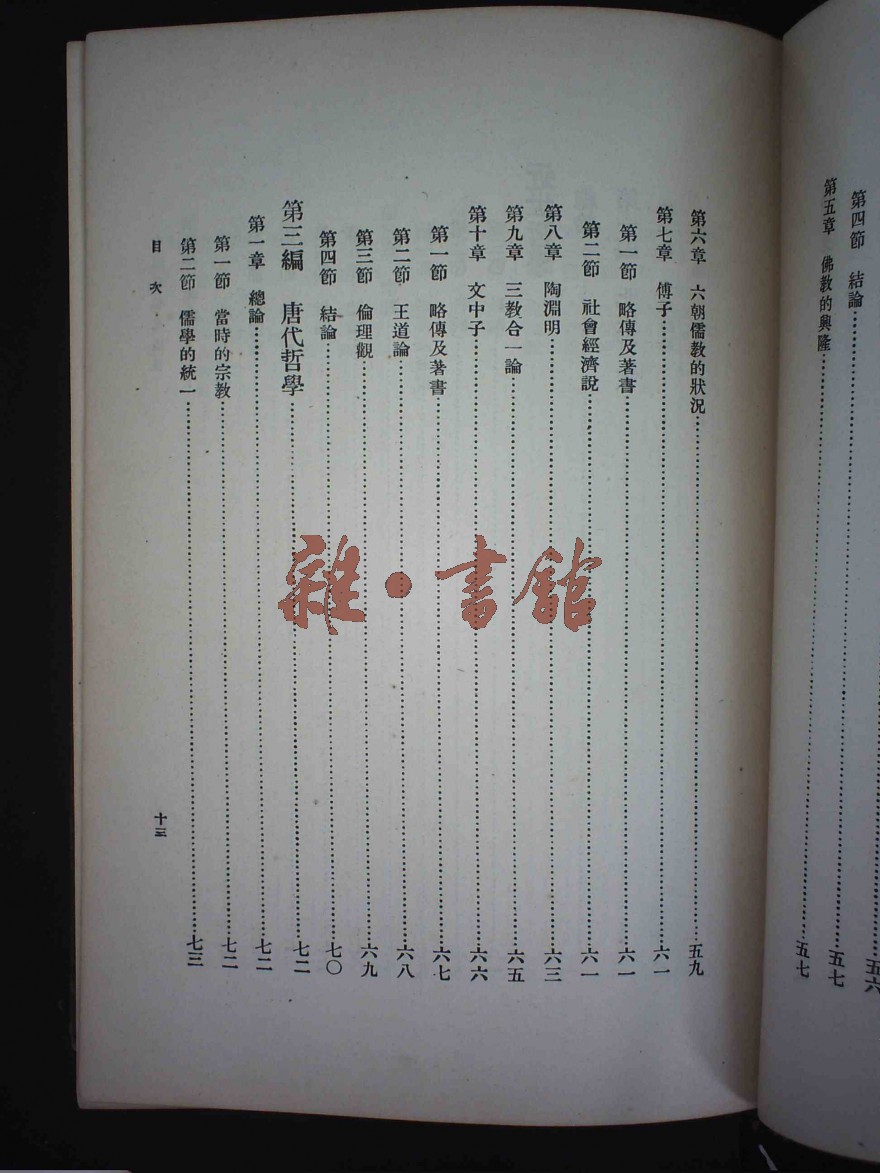 五六
第四節 結論……五七
第五章 佛教的興隆……五七
第六章 六朝儒教的狀況……五九
第七章 傅子……六一
第一節 略傳及著書……六一
第二節 社會經濟說……六一
第八章 陶淵明……六三
第九章 三教合一論……六五
第十章 文中子……六六
第一節 略傳及著書……六七
第二節 王道論……六八
第三節 倫理觀……六九
第四節 結論……七〇
第三編 唐代哲學……七二
第一章 總論……七二
第一節 當時的宗教……七二
第二節 儒學的統一……七三
目次 十三
雜·書館